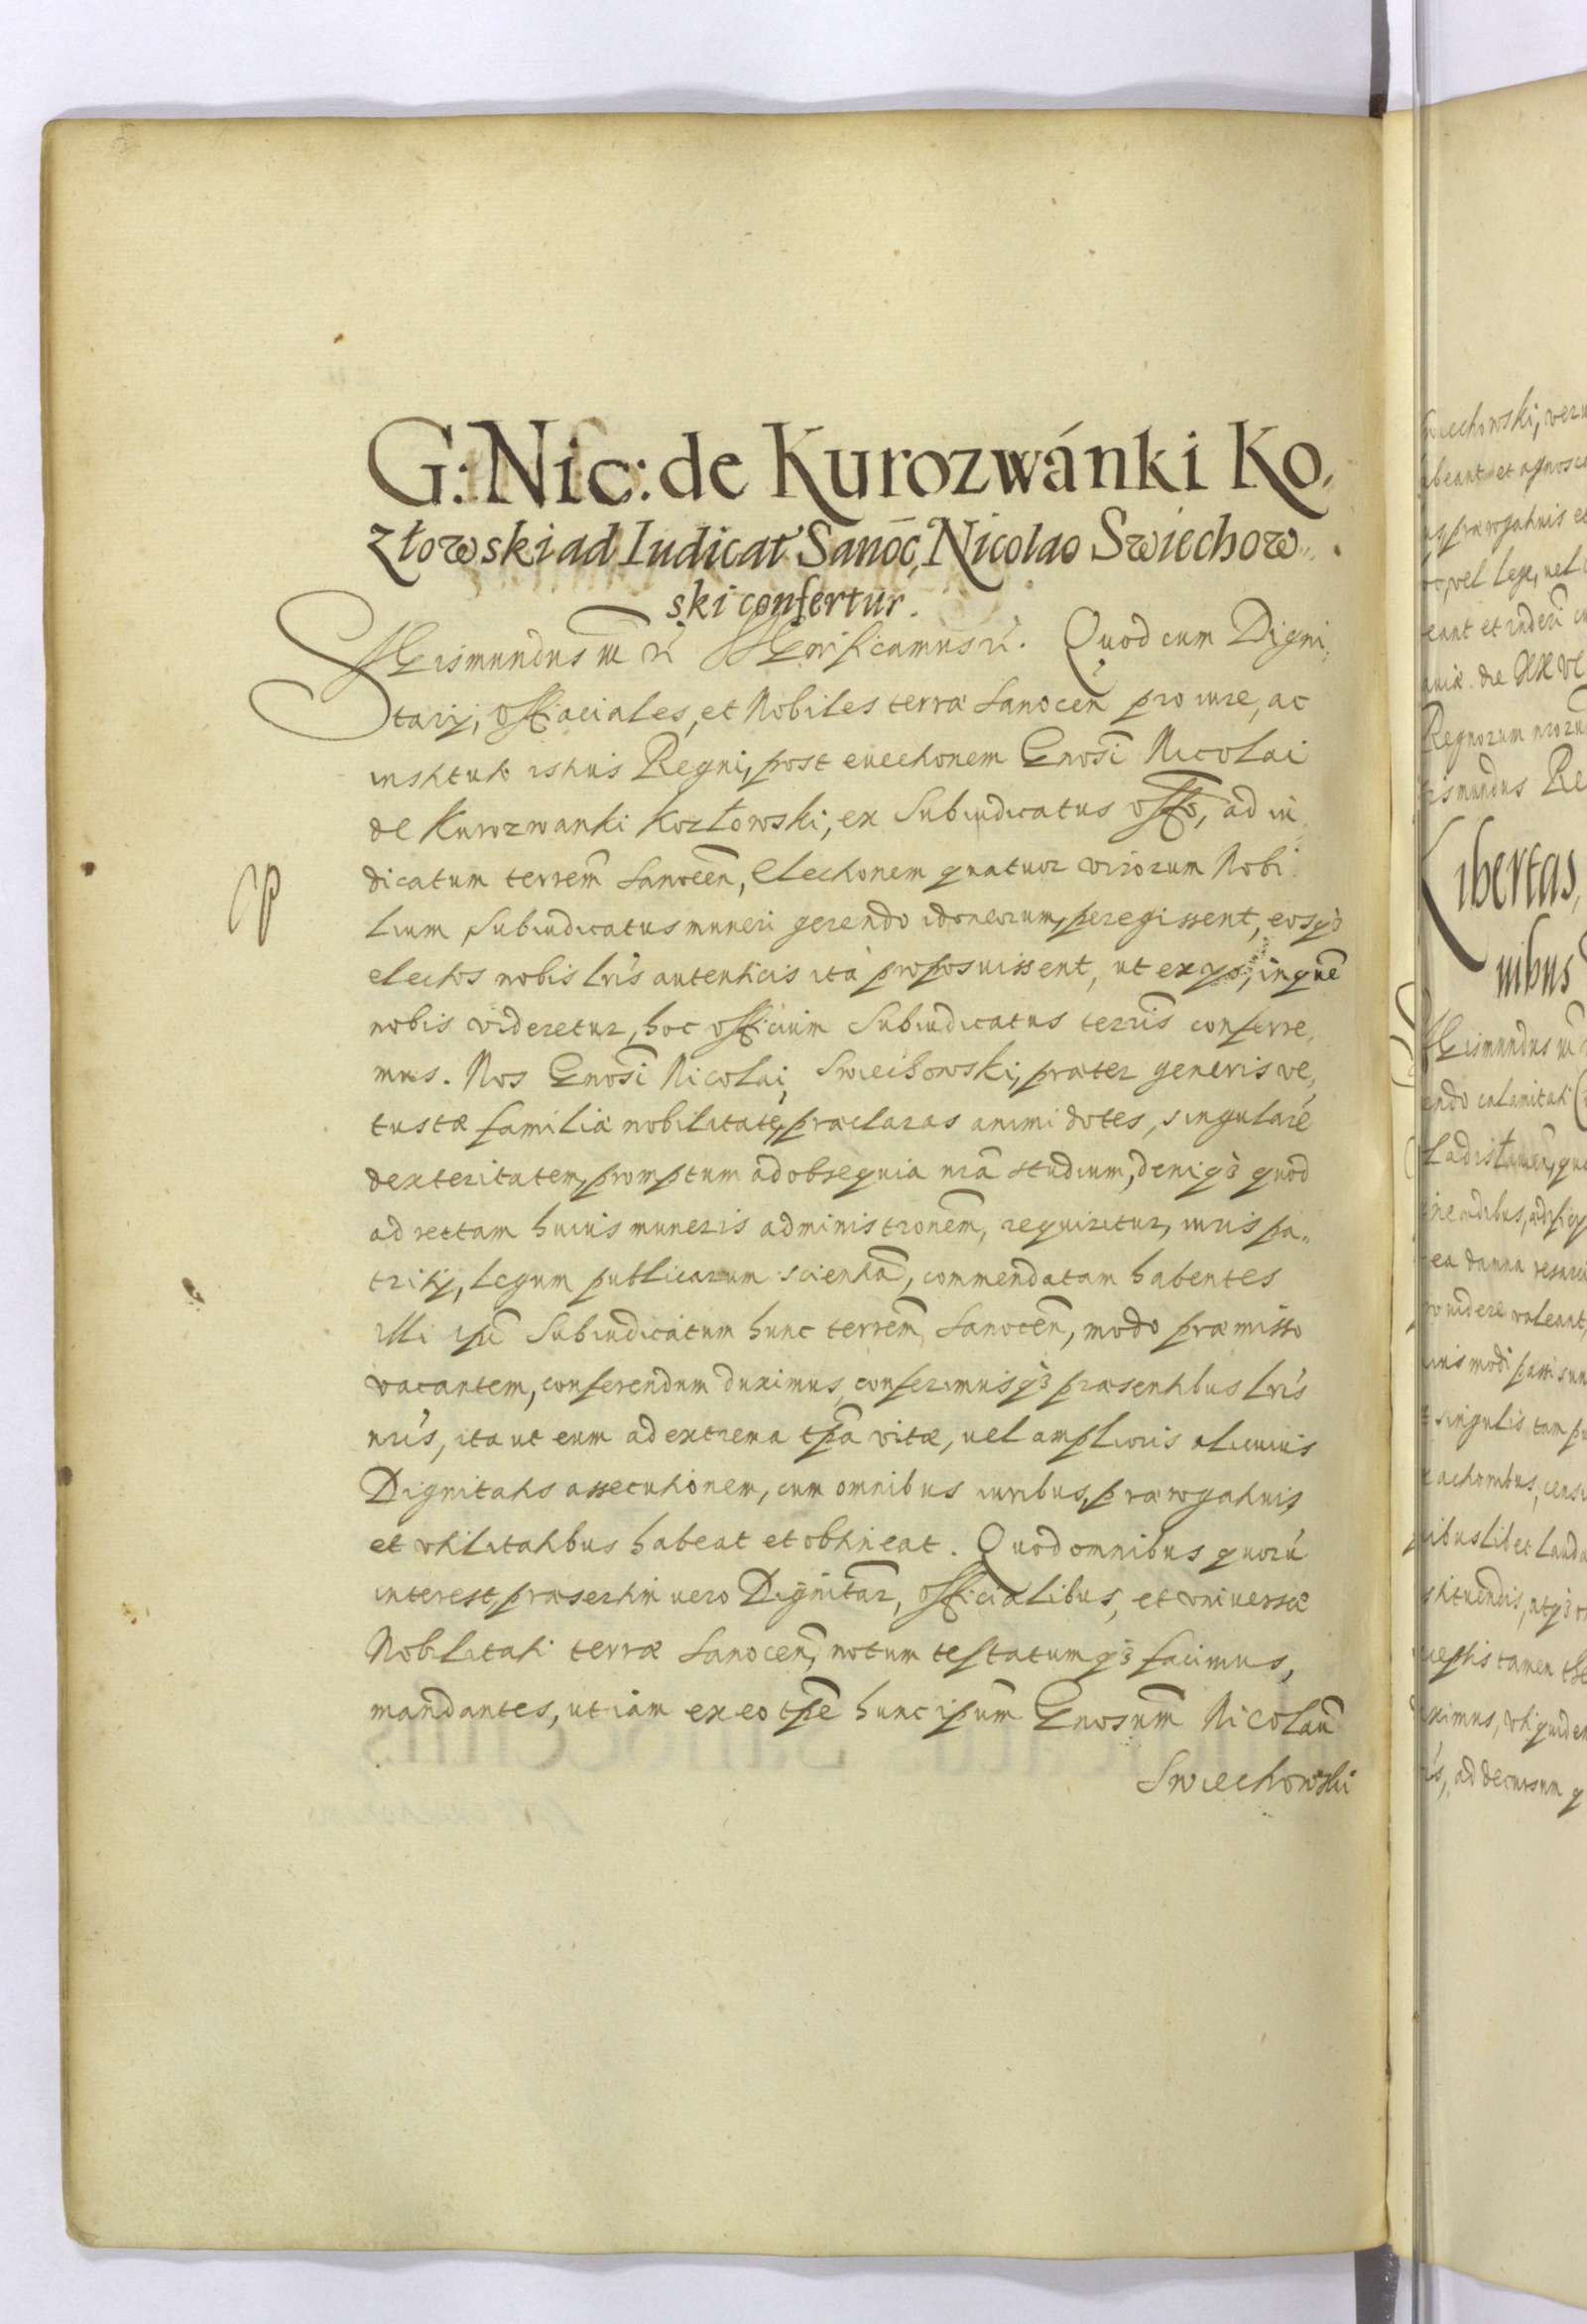 G: Nic: de Kurozwánki Ko,
złowski ad Iudicat' Sanoc, Nicolao Swiechow
ski confertur.
Sigismundus III rc̄ Significamus rc̄. Quod cum Digni,
tarij, officiales, et Nobiles terræ Sanocen̄ pro iure, ac
instituto istius Regni, post euectionem Gnosī Nicolai
de Kurozwanki Kozłowski, ex Subiudicatus offō, ad iu
dicatum terrem̄ Sanocen̄, electionem quatuor virorum Nobi
lium Subiudicatus muneri gerendo idoneorum, peregissent, eosq3
electos nobis lrīs autenticis ità proposuissent, ut ex ijs, in quē
nobis videretur, hoc officium Subiudicatus terrīs conferre,
mus. Nos Gnosī Nicolai Swiechowski, præter generis ve,
tustæ familiæ nobilitatē, præclaras animi dotes, singularē
dexteritatem, promptum ad obsequia nrā studium, deniq3 quod
ad rectam huius muneris administronem̄, requiritur, iuris pa,
trij, legum publicarum scientiā, commendatam habentes
illi ipī Subiudicatum hunc terrem̄ Sanocen̄, modo præmisso
vacantem, conferendum duximus, conferimusq3 præsentibus lrīs
nrīs, ita ut eum ad extrema tpā vitæ, uel amplioris alicuius
Dignitatis assecutionem, cum omnibus iuribus, prærogatiuis
et vtilitatibus habeat et obtineat. Quod omnibus quorū
interest, præsertim uero Dignitār, officialibus, et vniuersæ
Nobilitati terræ Sanocen̄, notum testatumq3 facimus,
mandantes, ut iam ex eo tpē hunc ipūm Gnosūm Nicolaū
Swiechowski
swiechowski, veru
et agnosc
prærogatiuis et
vel lege, uel
Regnorum nrorū
Re
Libertas,
nibus
Sigismundus III
calamitati
damna
ualeant,
singulis, tam pu
tamen
ad decursum q